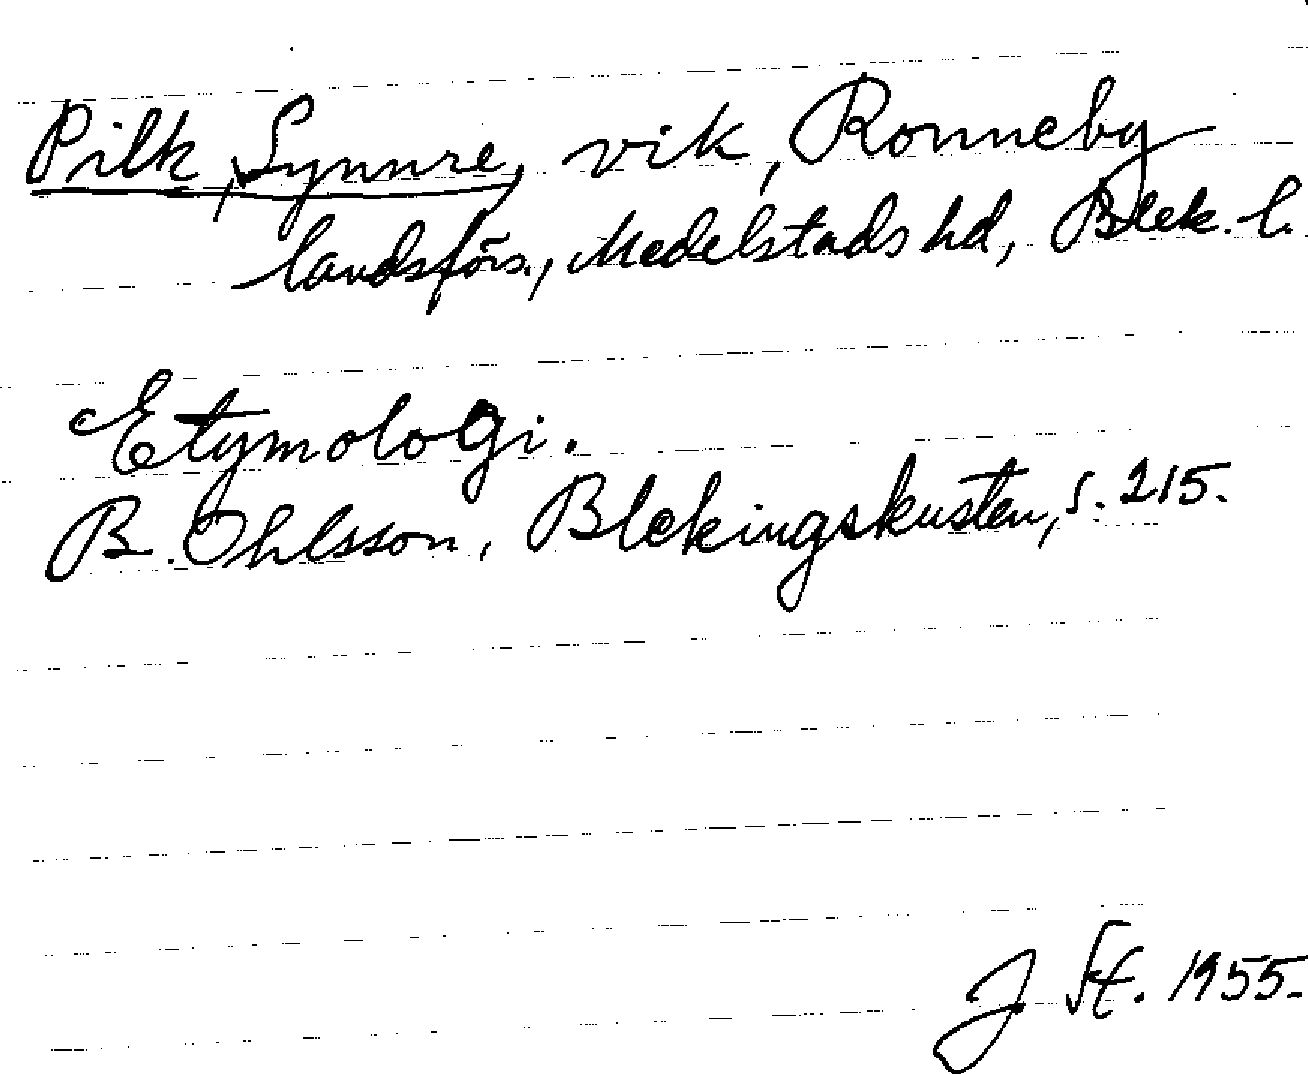 Pilk, Synnre, vik, Ronneby
landsförs., Medelstads hd, Blek. l.
Etymologi.
B. Ohlsson, Blekingskusten, s. 215.
J St. 1955.